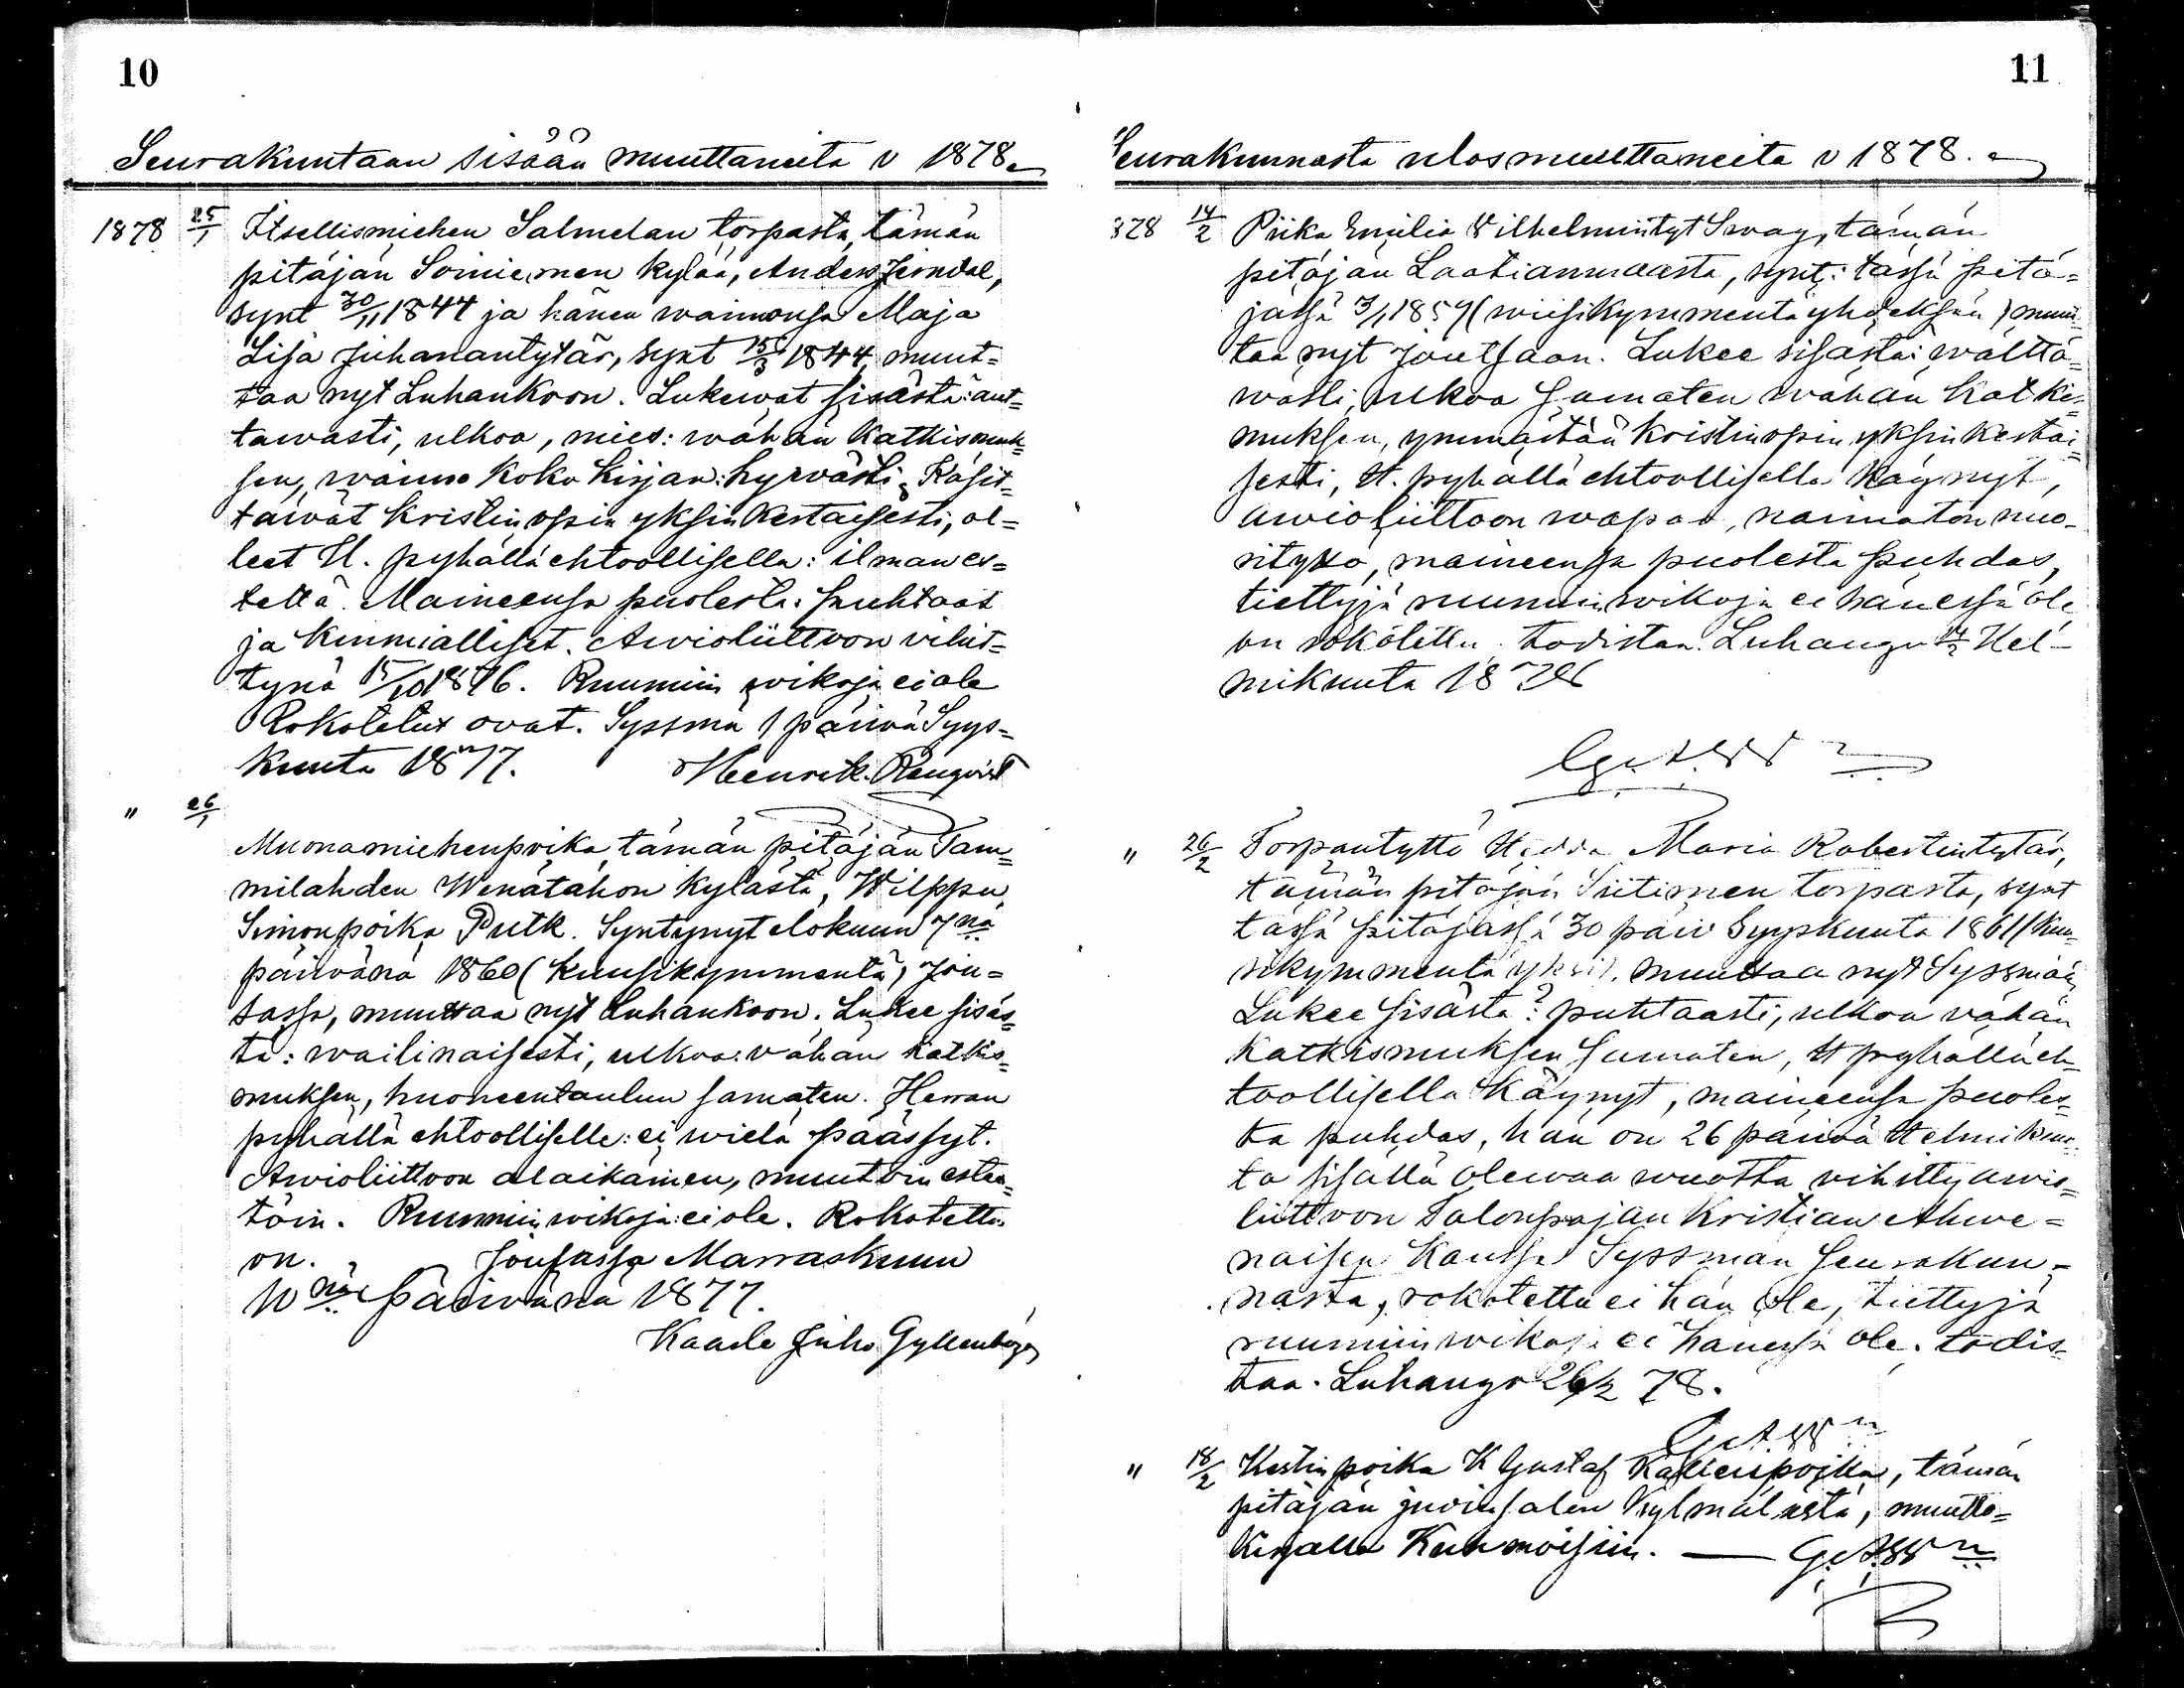 10
Seurakuntaan sisään muuttaneita v 1878.
1878 25/1 Itsellismiehen Salmelan torpasta, tämän
pitäjän Soiniemen kylää, Anders Jerndal,
synt 30/11 1844 ja hänen waimonsa Maja
Lisa Juhanantytär, synt 15/3 1844 muut=
taa nyt Luhankoon. Lukewat sisästä: aut=
tawasti, ulkoa, mies: wähän katkismuk=
sen, waimo koko kirjan: hyvästi. Käsit=
täwät kristin opin yksinkertaisesti, ol=
leet H. pyhällä ehtoollisella: ilman es=
tettä. Maineensa puolesta: puhtaat
ja kunnialliset. Awioliittoon vihit=
tynä 15/10 1876. Ruumiin wikoja ei ole
Rokotetut ovat. Syssmä 1 päiwä Syys=
kuuta 1877. Henrik Renqvist
" 26/1
Muonamiehenpoika, tämän pitäjän Tam=
milahden Wenätahon kylästä, Wilppu
Simonpoika Putk. Syntynyt elokuun 7nä
päiwänä 1860 (kuusikymmentä) Jou=
tsassa, muuttaa nyt Luhankoon. Lukee sisäs=
tä: wailinaisesti, ulkoa: vähän katkis=
muksen, huoneentaulun samaten. Herran
pyhällä ehtoollisella: ei wielä päässyt.
Awioliittoon alaikäinen, muutoin estee=
töin. Ruumiin wikoja: ei ole. Rokotettu
on. Joutsassa Marraskuun
10nä päiwänä 1877.
Kaarle Juho Gyllenbögel
11
Seurakunnasta ulosmuuttaneita v 1878.
878 14/2 Piika Emilia Vilhelmiintyt Sway, tämän
pitäjän Laatianmaasta, synt: tässä pitä=
jässä 3/1 1859 (wiisikymmentäyhdeksän) muut=
taa nyt Joutsaan. Lukee sisästä: wälttä=
wästi, ulkoa samaten wähän katkis=
muksen, ymmärtää kristinopin yksinkertai=
sesti, H. pyhällä ehtoollisella käynyt,
awioliittoon wapaa, naimatoin nuo=
rityttö, maineensa puolesta puhdas,
tiettyjä ruumiin wikoja ei hänessä ole,
on rokotettu. todistaa. Luhango 14/2 Hel=
mikuuta 1878
G. A. W n
" 26/2 Torpantyttö Hedda Maria Robertintytär,
tämän pitäjän Siitimen torpasta, synt
tässä pitäjässä 30 päiv Syyskuuta 1861 (kuu=
sikymmentä yksi). muuttaa nyt Syssmään
Lukee sisästä: puhtaasti, ulkoa vähän
katkismuksen samaten, H pyhällä eh=
toollisella käynyt, maineensa puoles=
ta puhdas, hän on 26 päiwä Helmikuu=
ta sisällä olewaa wuotta vihitty awio=
liittoon Talonpojan Kristian Ahwe=
naisen kanssa Syssmän seurakun=
nasta, rokotettu ei hän ole, tiettyjä
ruumiin wikoja ei hänessä ole. todis=
taa. Luhango 26/2 78.
G. A. W n
" 18/2 Kestinpoika K Gustaf Kallenpoika, tämän
pitäjän Judinsalon Kylmälästä, muutto=
kirjalla Kuhmoisiin. — G. A. W n